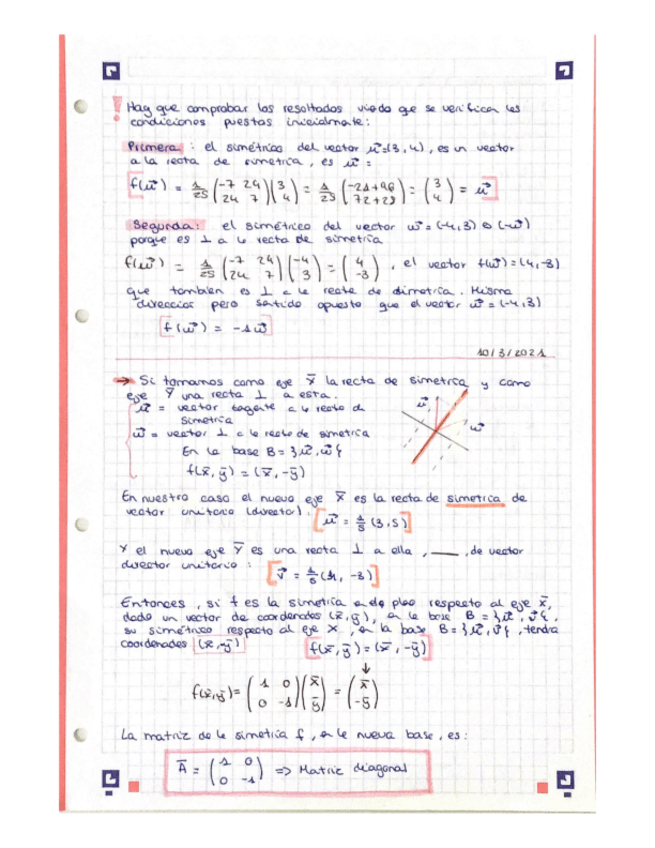 ! Hay que comprobar los resoltados viendo que se verifican las
condiciones puestas inicialmente:
Primera: el simétrico del vector u⃗=(3,4), es un vector
a la recta de simetria, es u⃗ =
f(u⃗) = 1/25 (-7 24; 24 7)(3; 4) = 1/25 (-21+96; 72+28) = (3; 4) = u⃗
Segunda: el simétrico del vector w⃗ = (-4,3) es (-w⃗)
porque es ⊥ a la recta de simetria
f(w⃗) = 1/25 (-7 24; 24 7)(-4; 3) = (4; -3), el vector f(w⃗)=(4,-3)
que tambien es ⊥ a la recta de simetria. Misma
direccion pero sentido opuesto que el vector w⃗ = (-4,3)
f(w⃗) = -1w⃗
10/3/2021
→ Si tomamos como eje x̄ la recta de simetria y como
eje ȳ una recta ⊥ a esta.
u⃗ = vector tangente a la recta de
simetria
w⃗ = vector ⊥ a la recta de simetria
En la base B = }u⃗, w⃗{
f(x̄, ȳ) = (x̄, -ȳ)
u⃗
w⃗
En nuestro caso el nuevo eje x̄ es la recta de simetrica de
vector unitario (director): [u⃗ = 1/5 (3,5)]
Y el nuevo eje Ȳ es una recta ⊥ a ella, ___, de vector
director unitario: [v⃗ = 1/5 (4, -3)]
Entonces, si f es la simetria en do plao respecto al eje x̄,
dado un vector de coordenadas (x̄,ȳ), en la base B = }u⃗, v⃗{,
su simétrico respecto al eje X, en la base B=}u⃗,v⃗{, tendra
coordenadas (x̄,-ȳ) [f(x̄,ȳ)=(x̄, -ȳ)]
f(x̄,ȳ)= (1 0; 0 -1)(x̄; ȳ) = (x̄; -ȳ)
La matriz de la simetria f, en la nueva base, es:
Ā = (1 0; 0 -1) => Matriz diagonal